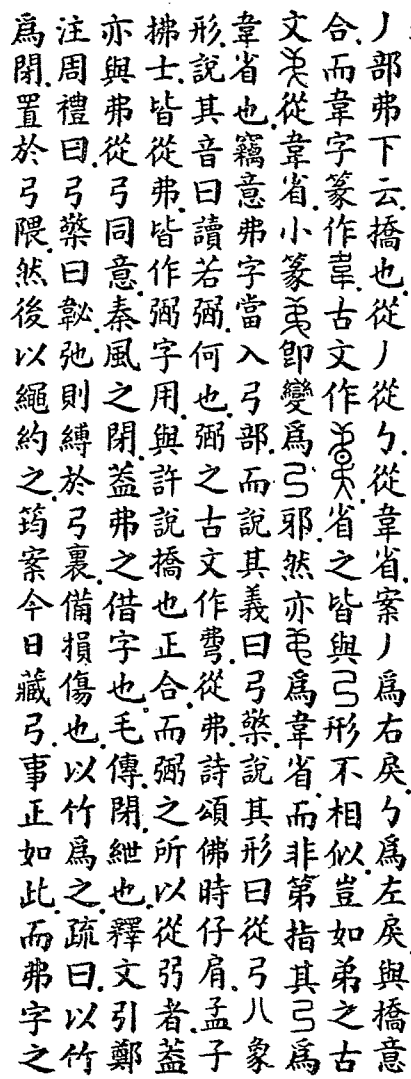 丿部弗下云撟也從丿從乀從韋省案丿爲右戾乀爲左戾與撟意
合而韋字篆作韋古文作省之皆與弓形不相似豈如弟之古
文從韋省小篆即變爲弓邪然亦爲韋省而非第指其弓爲
韋省也竊意弗字當入弓部而說其義曰弓檠說其形曰從弓八象
形說其音曰讀若弼何也弼之古文作𢐡從弗詩頌佛時仔肩孟子
拂士皆從弗皆作弼字用與許說撟也正合而弼之所以從弜者蓋
亦與弗從弓同意秦風之閉蓋弗之借字也毛傳閉紲也釋文引鄭
注周禮曰弓檠曰䪐弛則縛於弓裏備損傷也以竹爲之疏曰以竹
爲閉置於弓隈然後以繩約之筠案今日藏弓事正如此而弗字之